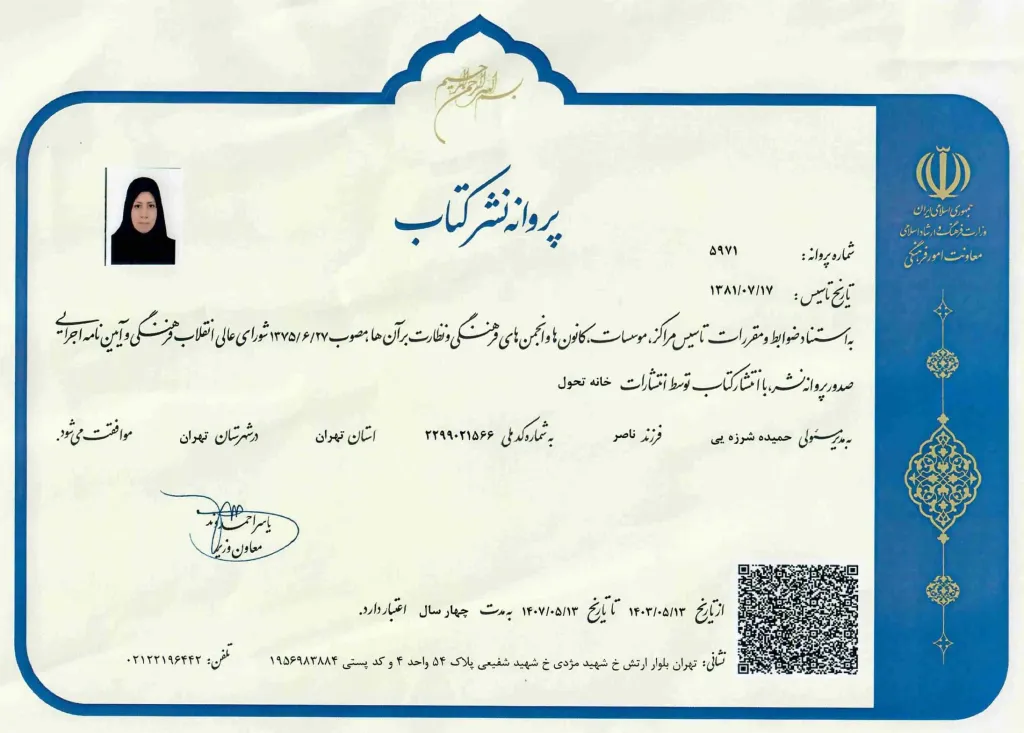 بسم الله الرحمن الرحیم
جمهوری اسلامی ایران
وزارت فرهنگ و ارشاد اسلامی
معاونت امور فرهنگی
پروانه نشر کتاب
شماره پروانه: ۵۹۷۱
تاریخ تاسیس: ۱۳۸۱/۰۷/۱۷
به استناد ضوابط و مقررات تاسیس مراکز، موسسات، کانون ها و انجمن های فرهنگی و نظارت بر آن ها، مصوب ۱۳۷۵/۶/۲۷ شورای عالی انقلاب فرهنگی و آیین نامه اجرایی
صدور پروانه نشر، با انتشار کتاب توسط انتشارات خانه تحول
به مدیر مسئولی حمیده شرزه یی فرزند ناصر به شماره کد ملی ۲۲۹۹۰۲۱۵۶۶ استان تهران در شهرستان تهران موافقت می‌شود.
یاسر احمدوند
معاون وزیر
از تاریخ ۱۴۰۳/۰۵/۱۳ تا تاریخ ۱۴۰۷/۰۵/۱۳ به مدت چهار سال اعتبار دارد.
نشانی: تهران بلوار ارتش خ شهید مژدی خ شهید شفیعی پلاک ۵۴ واحد ۴ و کد پستی ۱۹۵۶۹۸۳۸۸۴ تلفن: ۰۲۱۲۲۱۹۶۴۴۲